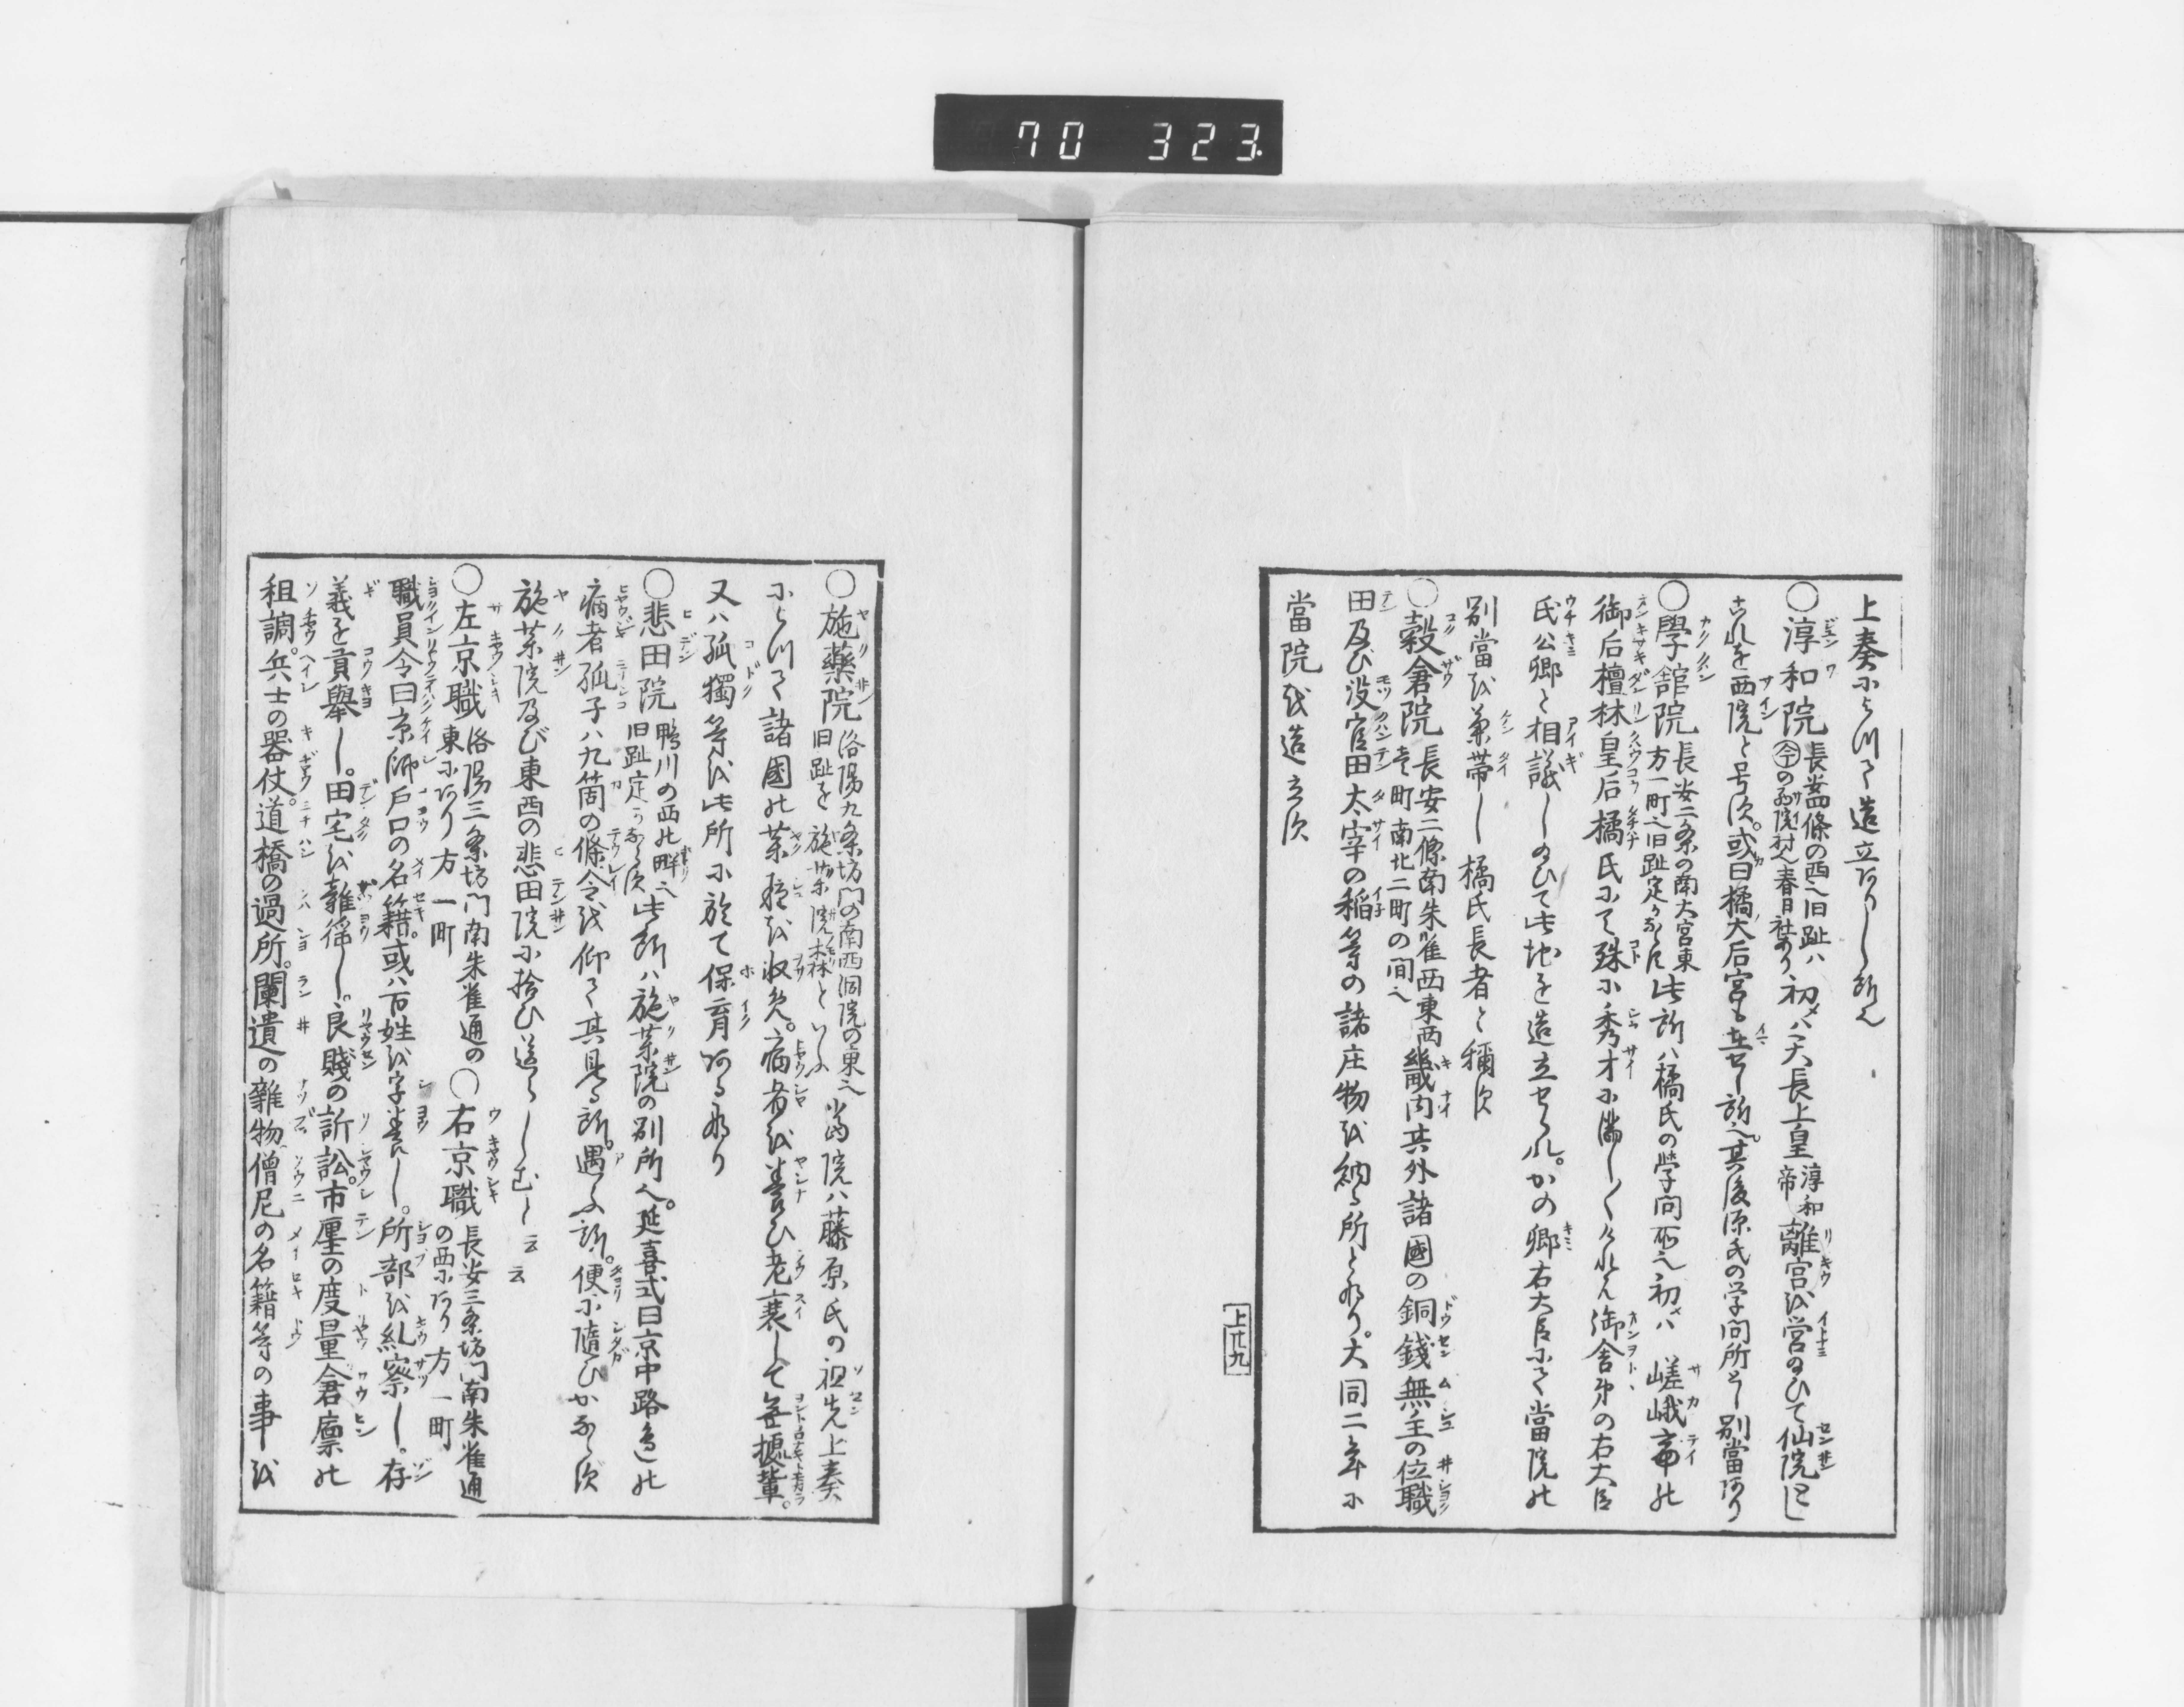 70 323
上奏によつて造立ありし所也
○淳和院 長安四條の西へ旧趾ハ今の西院村也春日社あり 初メハ天長上皇淳和帝離宮を営るひて仙院に
古れを西院と号す。或曰橘大后宮も在せし所也。其後源氏の学問所とし別當あり
○學舘院 長安二条の南大宮東方一町也旧趾定かならず 此所ハ橘氏の學問所也初メハ嵯峨帝の
御后檀林皇后橘氏にて殊に秀才に満しくけれバ御舎弟の右大臣
氏公卿と相議しのひて此地を造立せられ。かの卿右大臣にて當院の
別當を兼帯し橘氏長者と稱す
○穀倉院 長安二條南朱雀西東西壱町南北二町の間也 畿内其外諸國の銅錢無主の位職
田及び没官田太宰の稲等の諸庄物を納る所となり。大同二年に
當院を造立す
上廿九
○施藥院 洛陽九条坊門の南西洞院の東也旧趾を施薬院森といふ 當院ハ藤原氏の祖先上奏
によつて諸國の薬種を収め。病者を養ひ老衰して無據輩。
又ハ孤獨等を此所に於て保育ある也
○悲田院 鴨川の西の畔也旧趾定かならず 此所ハ施薬院の別所也。延喜式曰京中路邊の
病者孤子ハ九箇の條令を仰て其見る所。遇ふ所。便に隨ひかならず
施薬院及び東西の悲田院に拾ひ送らしむし云云
○左京職 洛陽三条坊門南朱雀通の東にあり方一町 ○右京職 長安三条坊門南朱雀通の西にあり方一町
職員令曰京師戸口の名籍。或ハ百姓を字養し。所部を糺察し。存
義を貢舉し。田宅を雜徭し。良賤の訴訟。市廛の度量倉廩の
租調。兵士の器仗。道橋の過所。闌遺の雜物僧尼の名籍等の事を